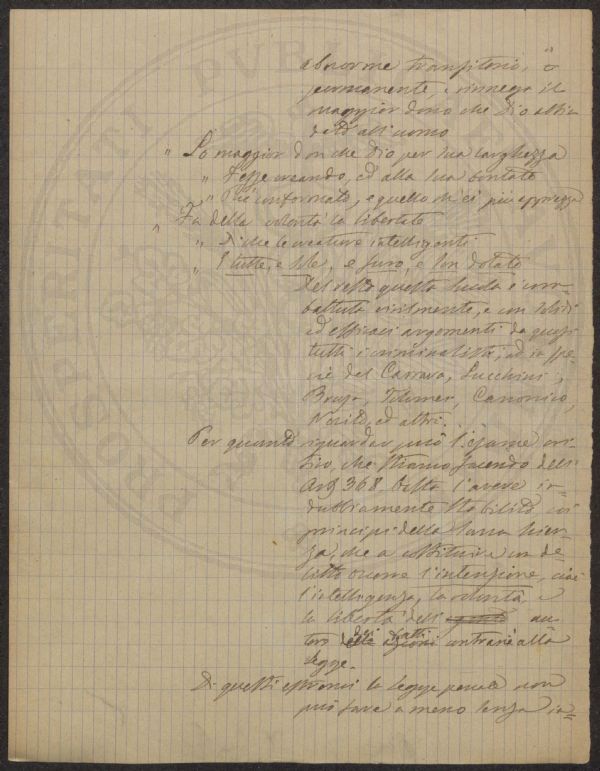 abnorme transitorio, o
permanente, e rinnega il
maggior dono che Dio abbia
dato all'uomo
" Lo maggior don che Dio per sua larghezza
" Fesse creando, ed alla sua bontate
" Più conformato, e quello ch'ei più apprezza
" Fu della volontà la libertate
" Di che le creature intelligenti
" E tutte, e sole, e furo, e son dotate
Del resto questa scuola è com-
battuta virilmente, e con solidi
ed efficaci argomenti da quasi
tutti i criminalisti, ed in spe-
cie dal Carrara, Lucchini,
Brusa, Tolomei, Canonico,
ed altri.
Per quanto riguardar può l'esame cri-
tico, che stiamo facendo dell'
Art 368, basta l'avere in-
dubbiamente stabilito coi
principi della sana scien-
za, che a costituire un de-
litto occorre l'intenzione, cioè
l'intelligenza, la volontà, e
la libertà dell' au-
tore degli atti contrari alla
legge.
Di questi estremi la legge penale non
può fare a meno senza in-